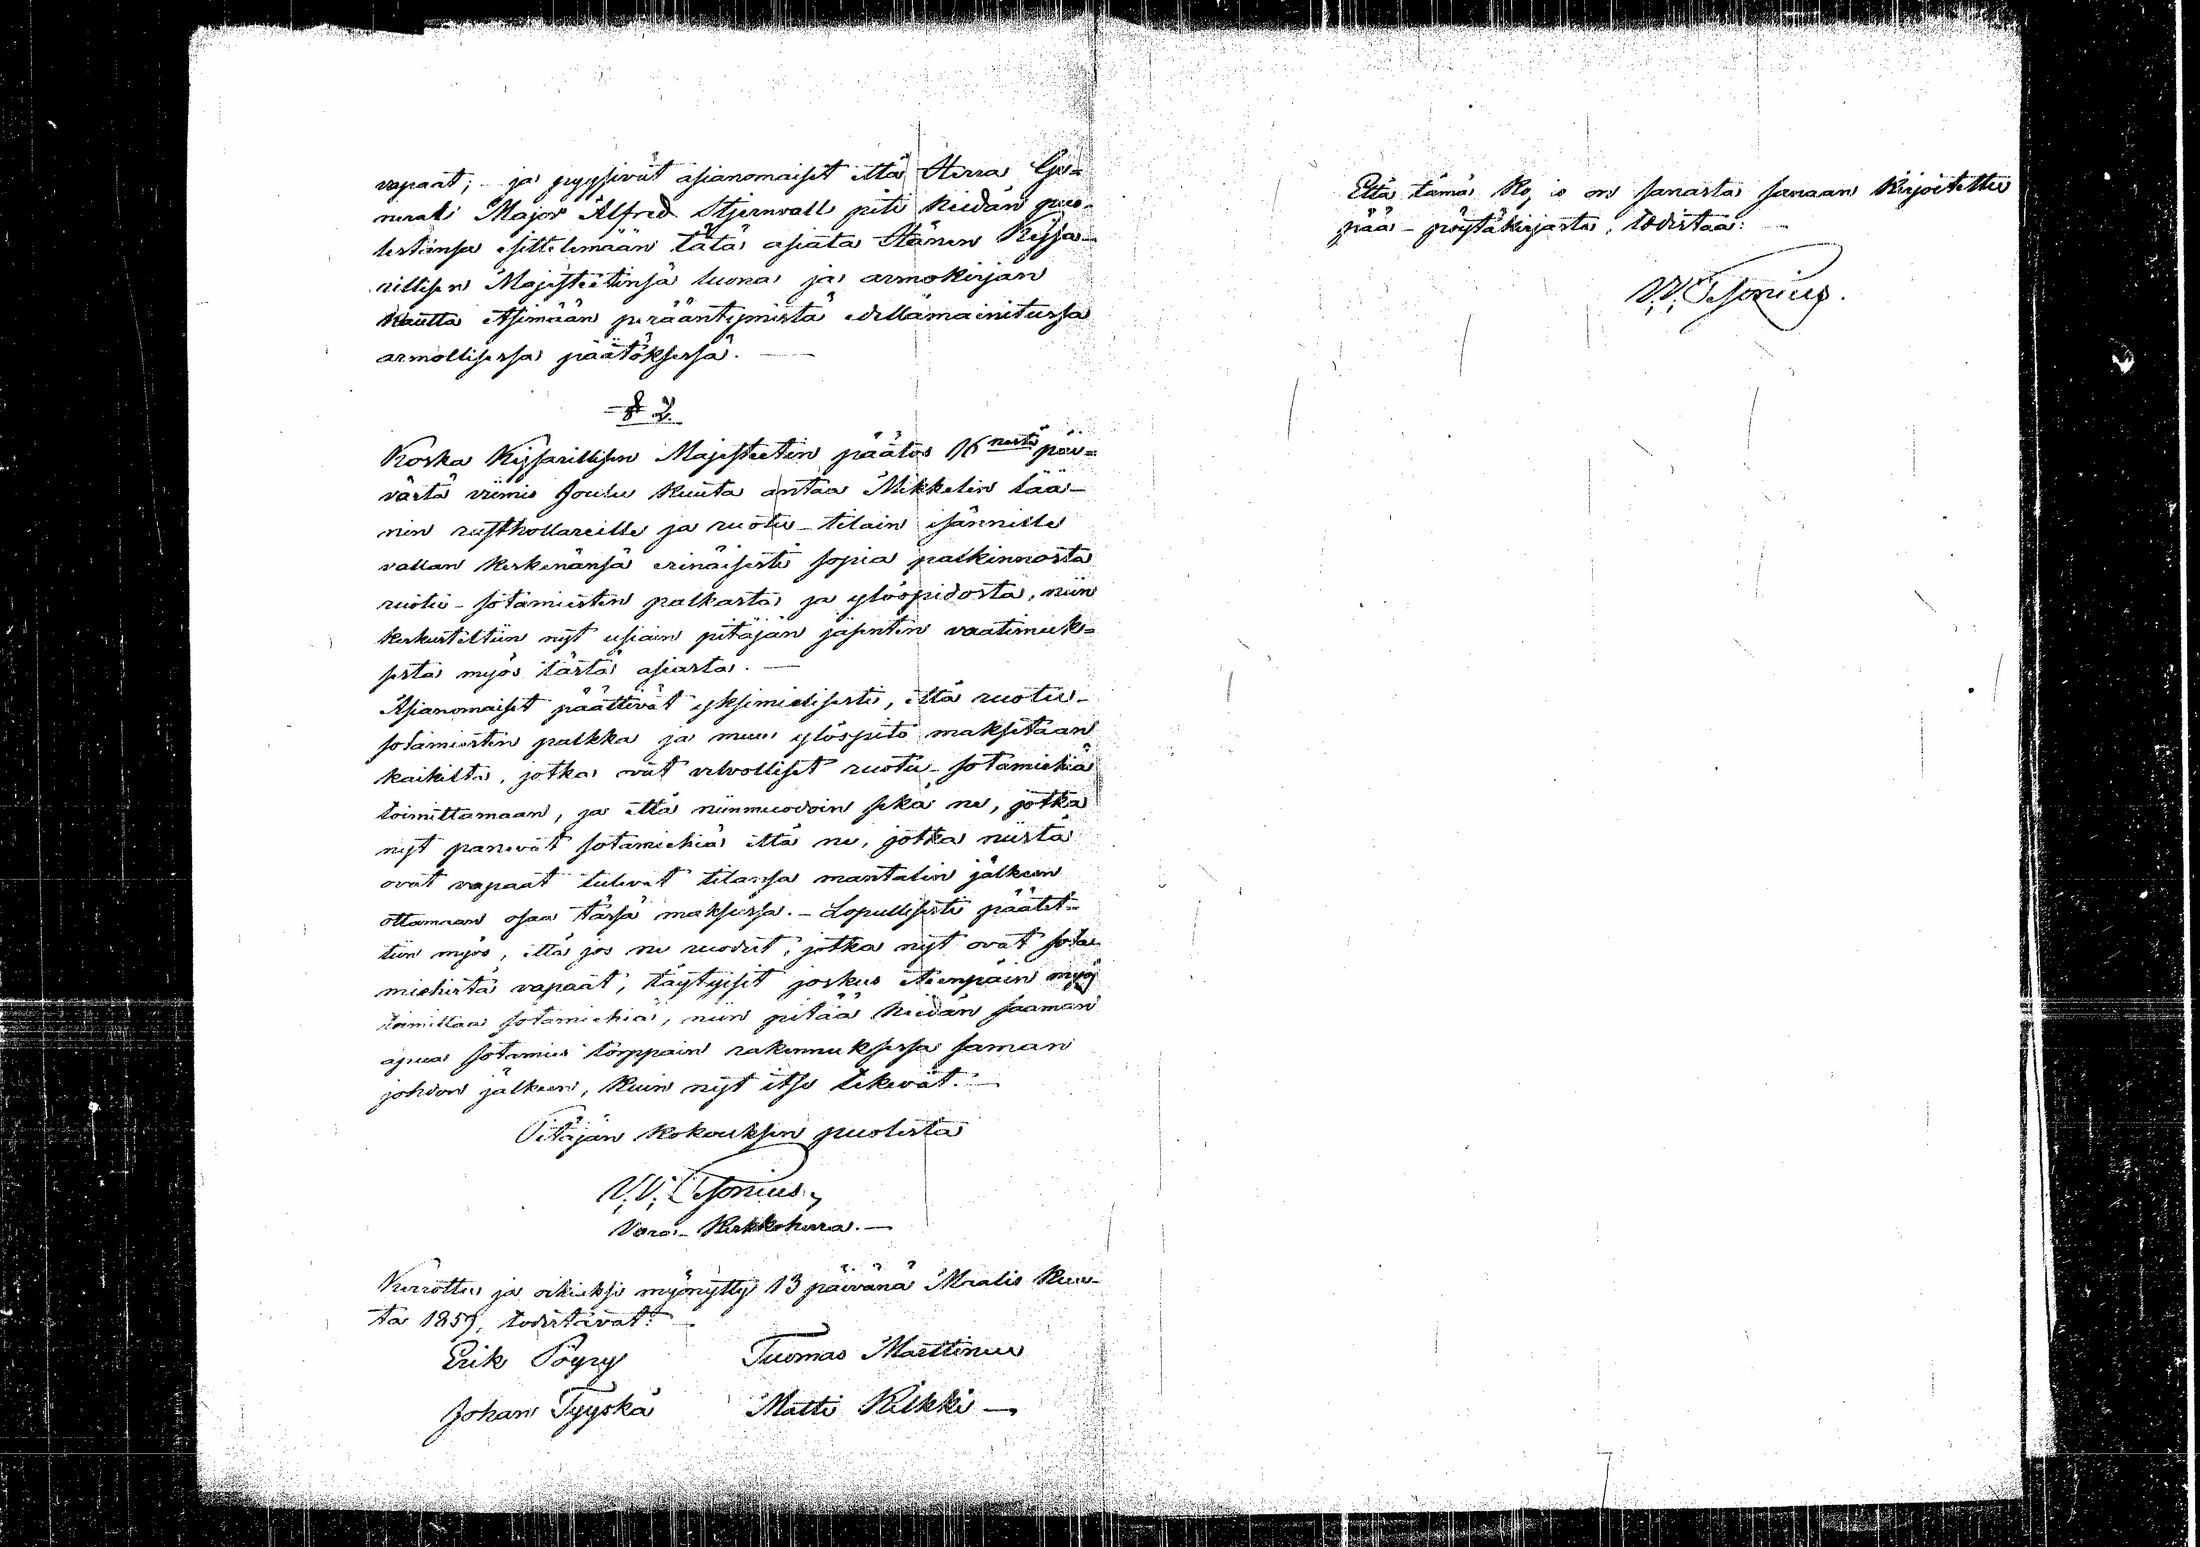 vapaat; ja pyysivät asianomaiset että Herra Ge-
nerali Major Alfred Stjernvall piti heidän puo-
lestansa esittelemään tätä asiata Hänen Keisa-
rillisen Majesteetinsä luona ja armokirjan
kautta etsimään perääntymistä edellämainitussa
armollisessa päätöksessä. —
§ 2.
Koska Keisarillisen Majesteetin päätös 16 nesta päi-
västä viimis Joulu kuuta antaa Mikkelin lää-
nin rusthollareille ja ruotu-tilain isännille
vallan keskenänsä erinäisesti sopia palkinnosta
ruotu-sotamiesten palkasta ja ylöspidosta, niin
keskusteltiin nyt usiain pitäjän jäsenten vaatimuk-
sesta myös tästä asiasta. —
Asianomaiset päättivät yksimielisesti, että ruotu-
sotamiesten palkka ja muu ylöspito maksetaan
kaikilta, jotka ovat velvolliset ruotu-sotamiehiä
toimittamaan, ja että niinmuodoin sekä ne, jotka
nyt panevat sotamiehiä että ne, jotka niistä
ovat vapaat tulevat tilansa mantalin jälkeen
ottamaan osaa tässä maksussa. - Lopullisesti päätet-
tiin myös, että jos ne ruodut, jotka nyt ovat sota-
miehistä vapaat, täytyisit joskus eteenpäin myös
toimittaa sotamiehiä, niin pitää heidän saaman
apua sotamies torppain rakennuksessa saman
johdon jälkeen, kuin nyt itse tekevät. —
Pitäjän kokouksen puolesta
V. V. Tesonius,
Vara-Kirkkoherra. —
Kerrottu ja oikiaksi myönytty 13 päivänä Maalis kuu-
ta 1859, todistavat:
Erik Pöyry Tuomas Marttinen
Johan Tyyskä Matti Kilkki —
Että tämä on sanasta sanaan kirjoitettu
pää-pöytäkirjasta, todistaa: —
V. V. Tesonius.